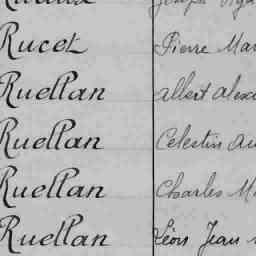 Rucet Pierre Mar
Ruellan Albert Alex
Ruellan Celestin Au
Ruellan Charles M
Ruellan Léon Jean